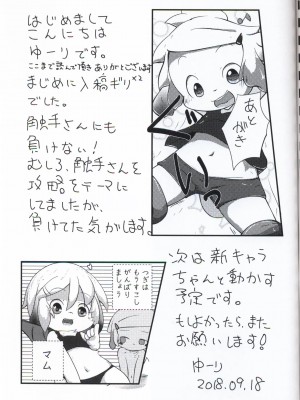 はじめまして
こんにちは
ゆーりです。
ここまで読んで頂きありがとうございます
まじめに入稿ギリ×2
でした。
触手さんにも
負けない!
むしろ、触手さんを
攻略をテーマに
してましたが、
負けてた気がします。
あとがき
つぎは
もうすこし
がんばり
ましょう
マム
次は新キャラ
ちゃんと動かす
予定です。
もしよかったら、また
お願いします!
ゆーり
2018.09.18